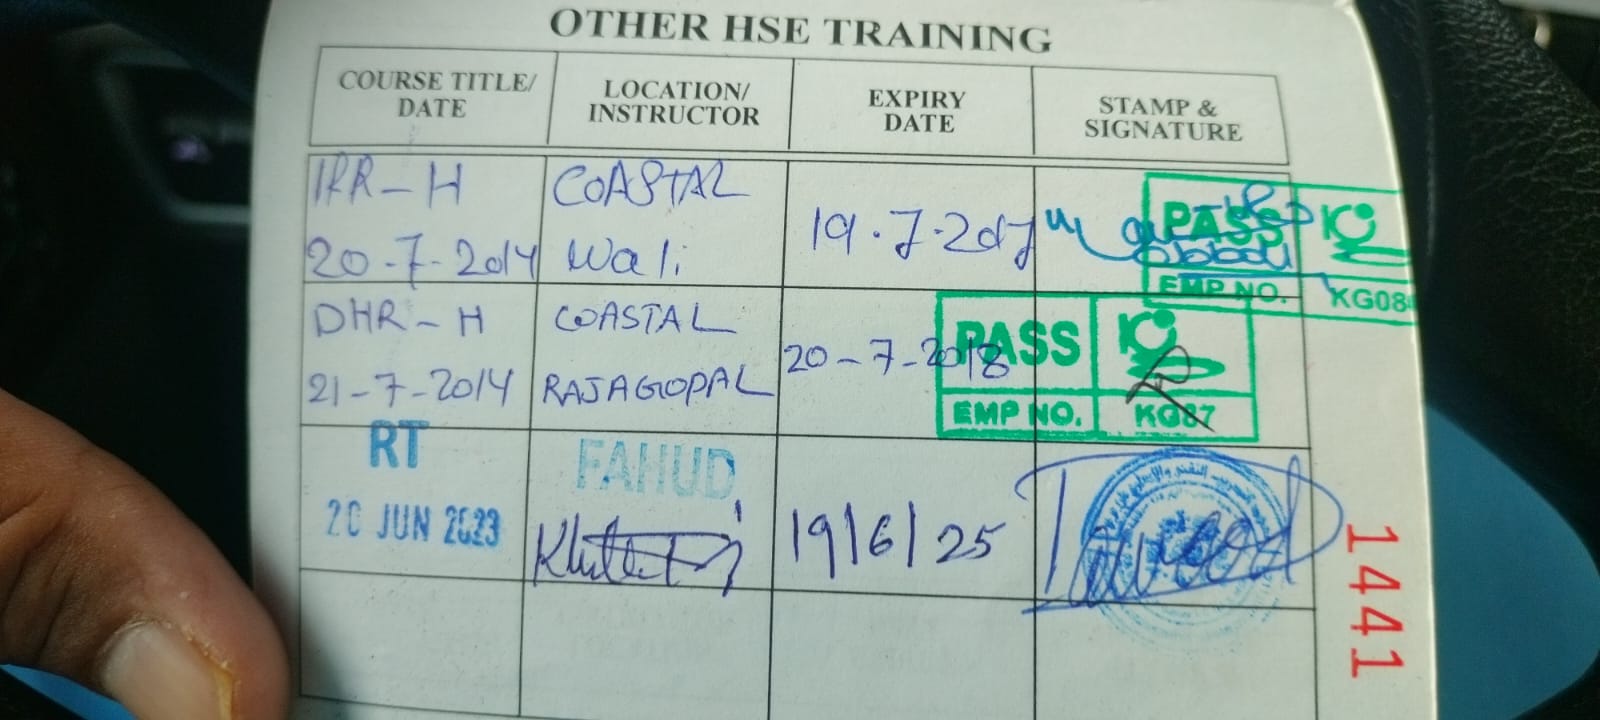 OTHER HSE TRAINING
COURSE TITLE/ DATE
LOCATION/ INSTRUCTOR
EXPIRY DATE
STAMP & SIGNATURE
IRR-H
20-7-2014
COASTAL
Wali
19.7.2017
PASS
EMP NO. KG08
DHR-H
21-7-2014
COASTAL
RAJAGOPAL
20-7-2018
PASS
EMP NO. KG87
RT
20 JUN 2023
FAHUD
19/6/25
1441